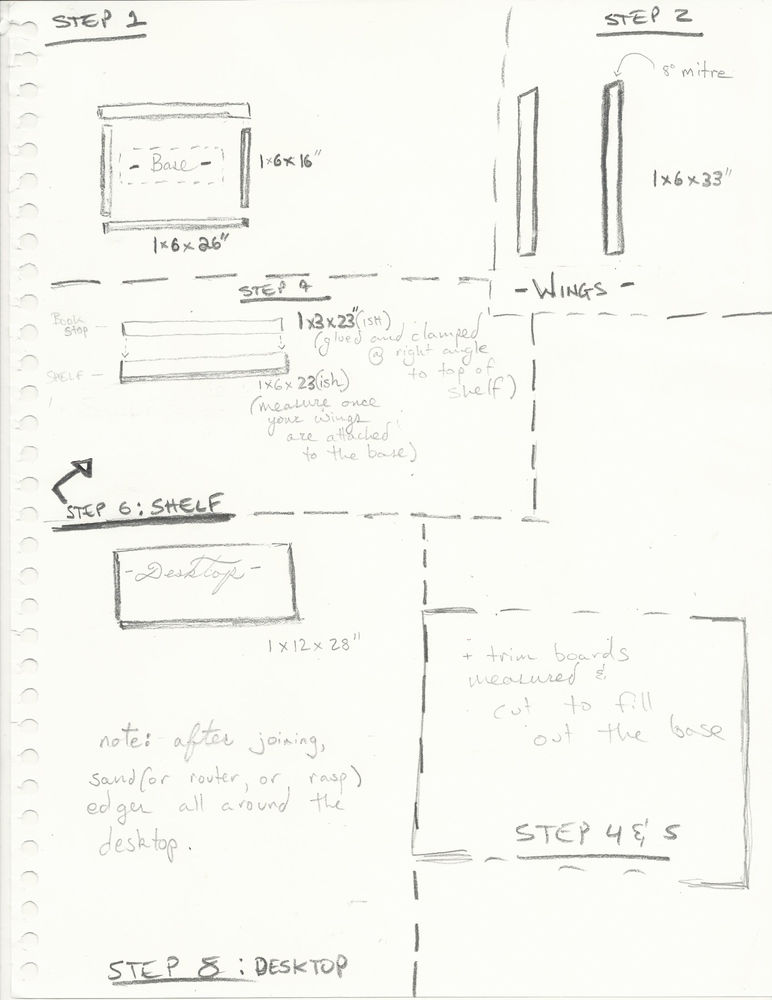 STEP 1
- Base -
1x6x16"
1x6x26"
STEP 2
8° mitre
1x6x33"
- WINGS -
STEP 4
BOOK
STOP -
1x3x23"(ISH)
(glued and clamped
@ right angle
to top of
shelf)
SHELF -
1x6x23(ish)
(measure once
your wings
are attached
to the base)
STEP 6: SHELF
- Desktop -
1x12x28"
note: after joining,
sand (or router, or rasp)
edges all around the
desktop.
STEP 8: DESKTOP
+ trim boards
measured &
cut to fill
out the base
STEP 4 & 5